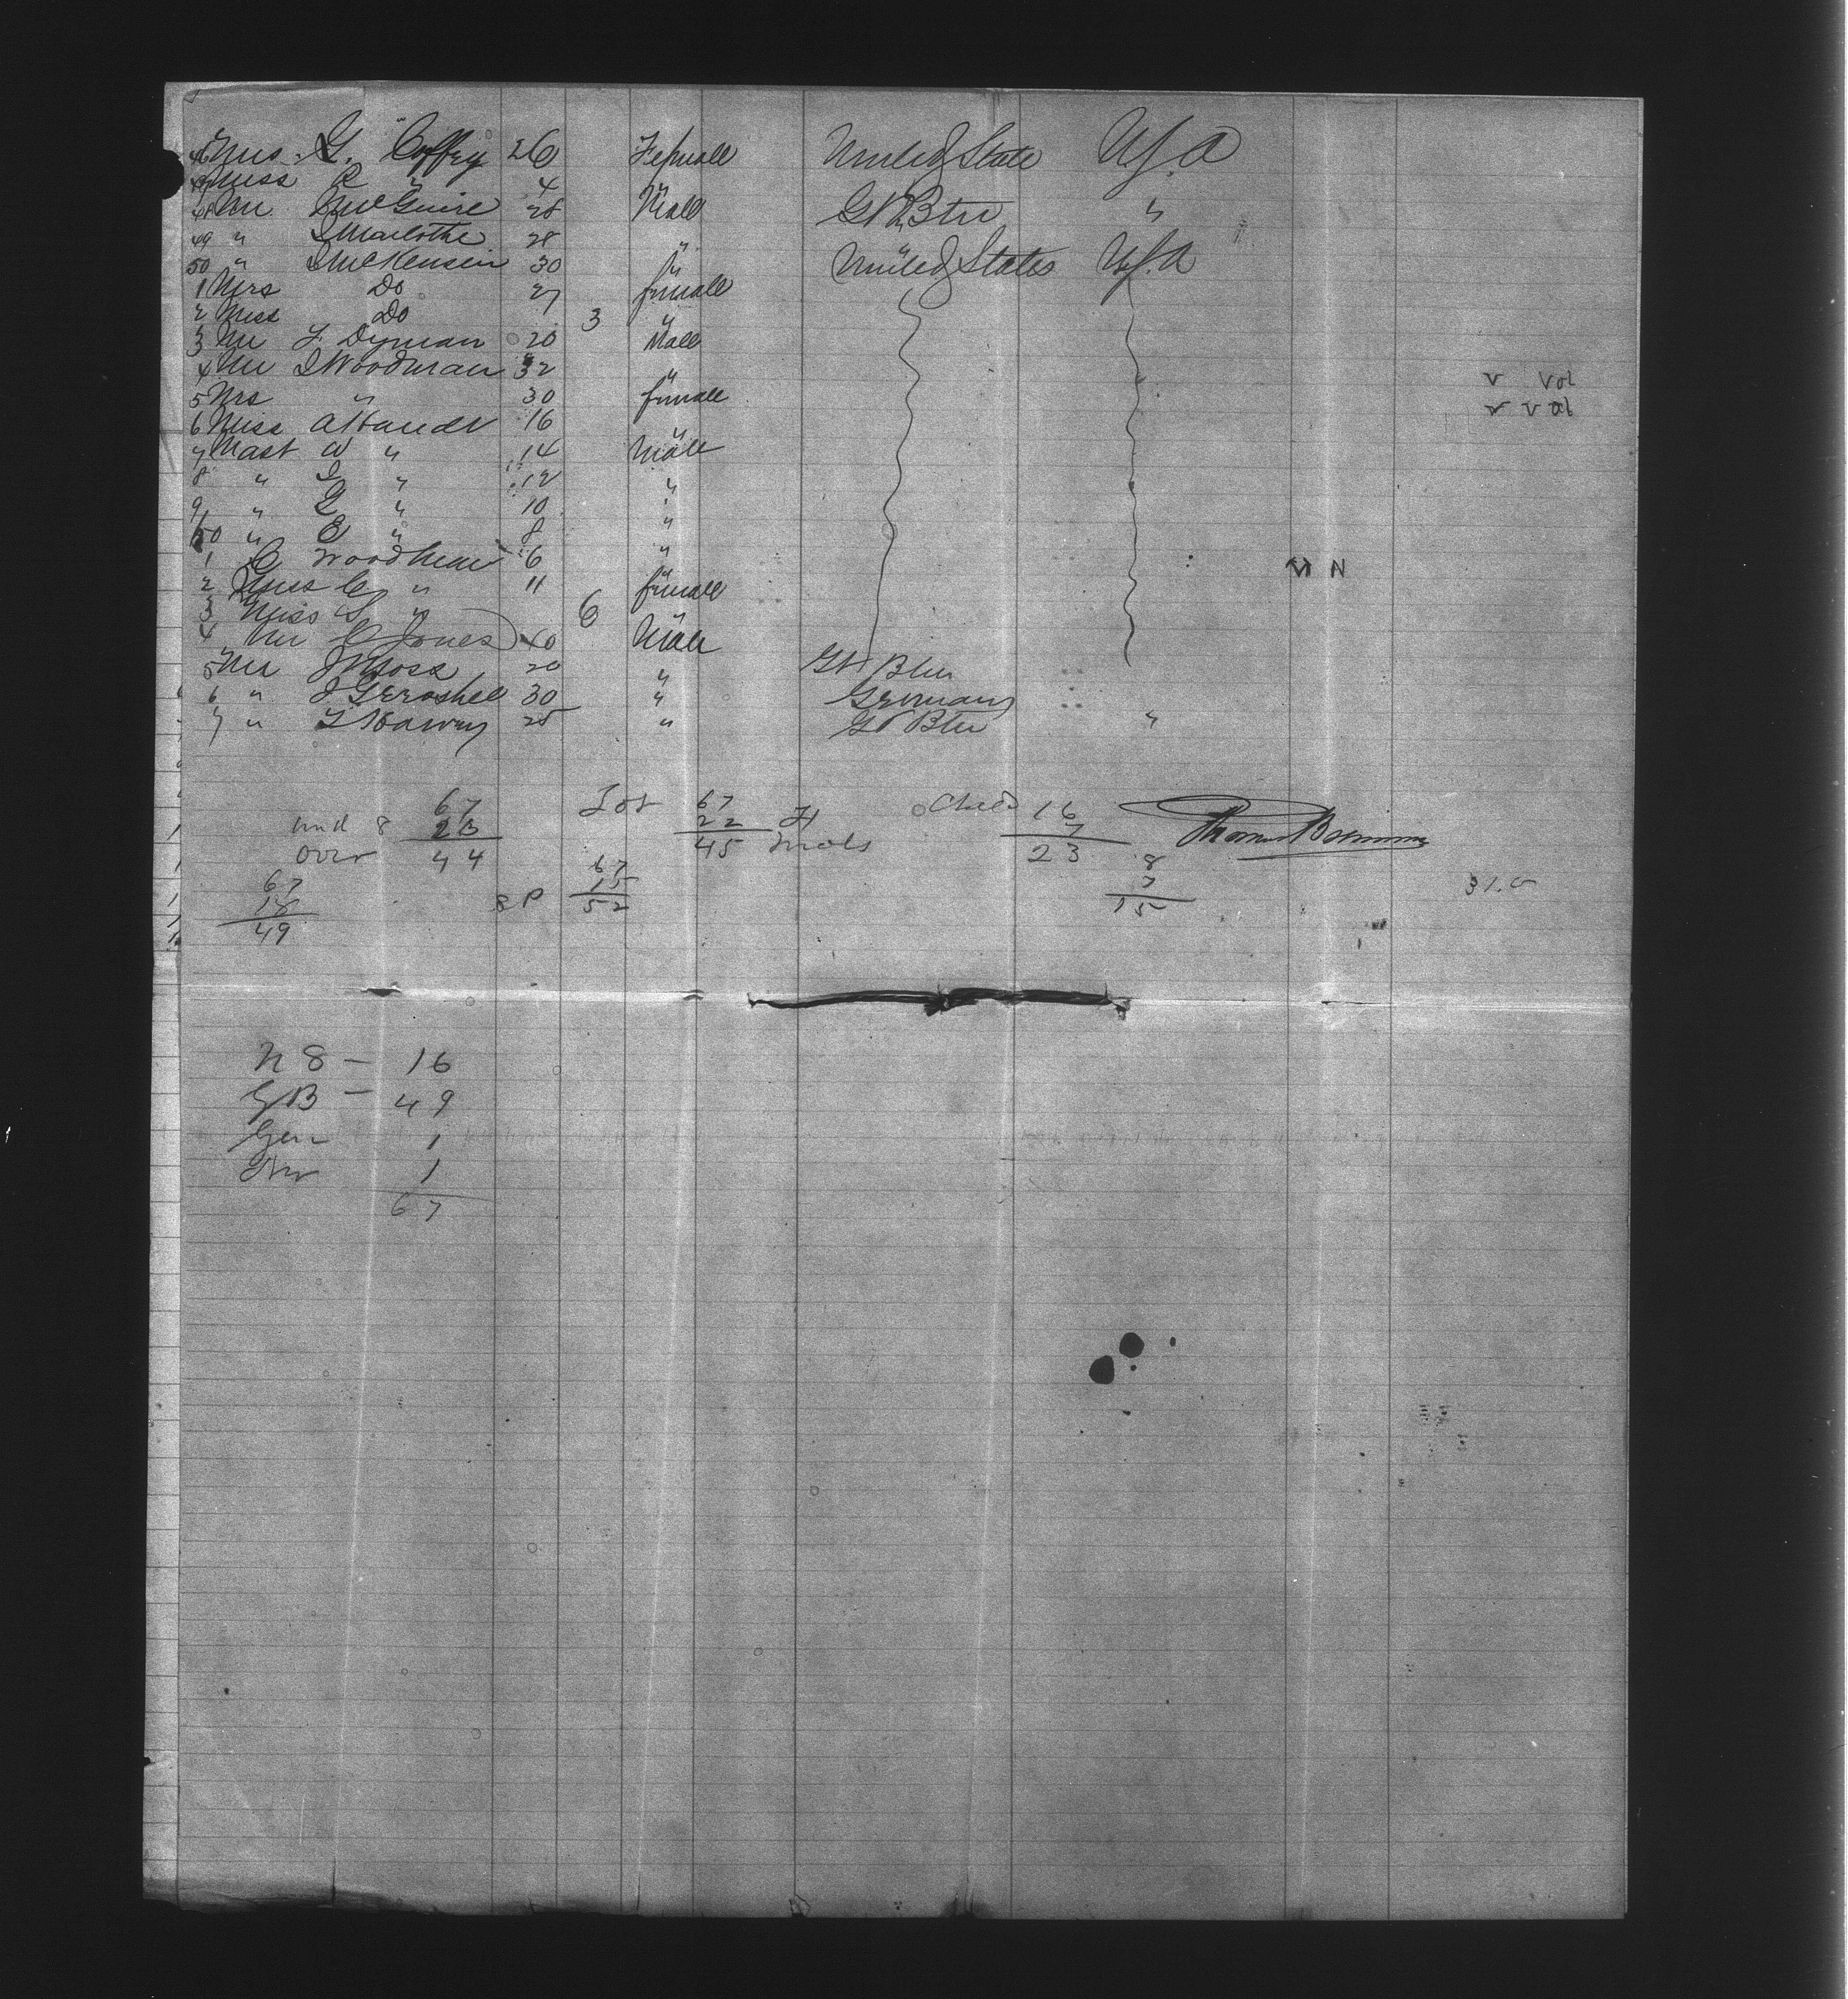 46 Mrs. G. Coffey 26 Female United State U.S.A
Miss R " 4 " "
48 Mr McGuire 28 Male Gt Btn "
49 " 28 " "
50 " J McKensin 30 " United States U.S.A
1 Mrs Do 27 female
2 Miss Do 3 "
3 Mr F. Dyman 20 Male
4 Mr J Woodman 32 "
5 Mrs " 30 female v Vol
6 Miss A 16 " v Vol
7 Mast W " 14 Male
8 " J " 12 "
9 " G " 10 "
60 " E " 8 "
1 C Woodman 6 "
2 Miss C " 11 female N
3 Miss S " 6 "
4 Mr C Jones 40 Male
5 Mr J Moss 20 " Gt Btn
6 " J 30 " Germany
7 " T Harvey 25 " Gt Btn "
67 Tot 67 Chld 16
und 8 23 22 F 7
over 44 45 Mals 23
67 67 8
18 8 P 15 7 31.
49 52 15
N 8 – 16
GB – 49
Ger 1
1
67